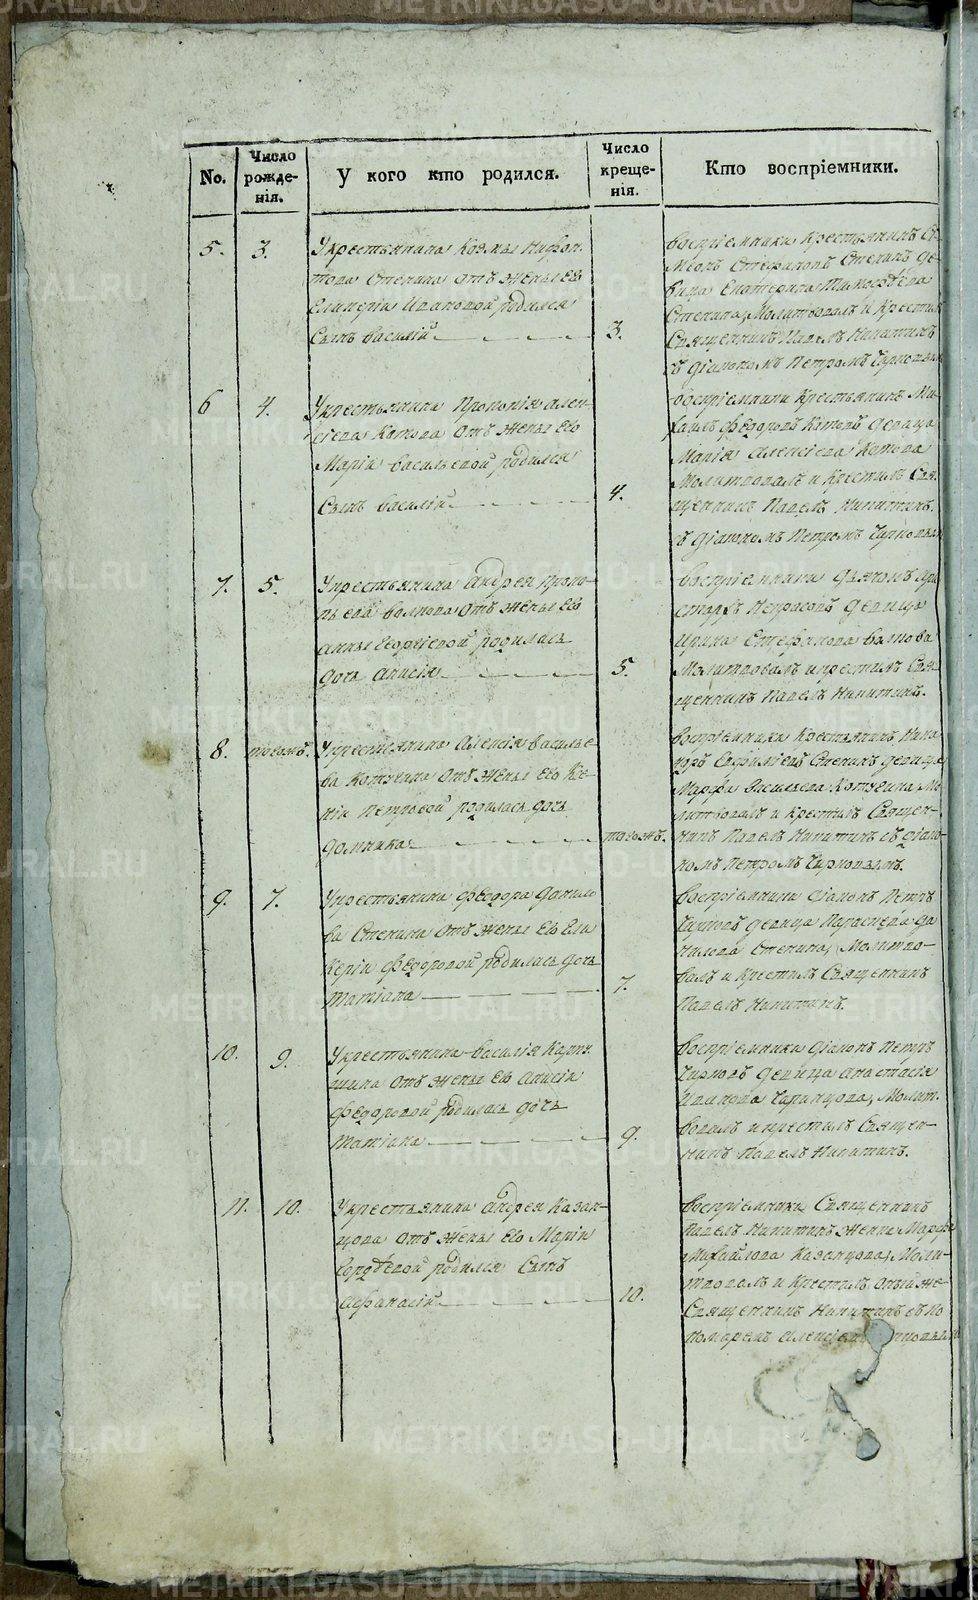 No.
Число рожде-нія.
У кого кто родился.
Число креще-нія.
Кто воспріемники.
5.
3.
Укрестьянина Козмы Нифон-
това Степина отъ жены Его
Гликеріи Ивановой родился
Сынъ Василій
3.
Воспріемники Крестьянинъ Си-
меонъ Стефановъ Степинъ де-
вица Екатерина
Степина, Молитвовалъ и Крестилъ
Священникъ Павелъ Никитинъ
съ діакономъ Петромъ
6
4.
Укрестьянина Прокопія Алек-
сіева Котова отъ жены Его
Маріи Васильевой родился
Сынъ Василій
4.
Воспріемники Крестьянинъ Ми-
хаилъ Федоровъ Котовъ девица
Марія Алексіева Котова
Молитвовалъ и Крестилъ Свя-
щенникъ Павелъ Никитинъ.
съ діакономъ Петромъ
7.
5.
Укрестьянина Андрея Проко-
пьева Волкова отъ жены Его
Анны Георгіевой родилась
дочь Анисія
5.
Воспріемники дьячокъ
Некрасовъ девица
Ирина Стефанова Волкова
Молитвовалъ и крестилъ Свя-
щенникъ Павелъ Никитинъ.
8.
тогожъ.
Укрестьянина Алексія Василье-
ва Котугина отъ жены Его Ксе-
ніи Петровой родилась дочь
Домника
тогожъ.
Воспріемники Крестьянинъ Ника-
норъ Степинъ девица
Марфа Васильева Котугина Мо-
литвовалъ и Крестилъ Священ-
никъ Павелъ Никитинъ съ діако-
номъ Петромъ
9.
7.
Укрестьянина Федора Данило
ва Степина отъ жены Его Гли
керіи Федоровой родилась дочь
Татіана
7.
Воспріемники діаконъ Петръ
девица Параскева Да
нилова Степина, Молитво-
валъ и Крестилъ Священникъ
Павелъ Никитинъ.
10.
9.
Укрестьянина Василія Карпу
шина отъ жены Его Анисіи
Федоровой родилась дочь
Татіана
9.
Воспріемники діаконъ Петръ
девица Анастасія
Иванова Молит-
вовалъ и крестилъ Священ-
никъ Павелъ Никитинъ.
11.
10.
Укрестьянина Андрея Казан-
цова отъ жены Его Маріи
Сергѣевой родился Сынъ
Афанасій
10.
Воспріемники Священникъ
Павелъ Никитинъ женка Марфа
Михайлова Казанцова, Моли-
твовалъ и Крестилъ онъ же
Священникъ Никитинъ съ по
номаремъ
METRIKI.GASO-URAL.RU